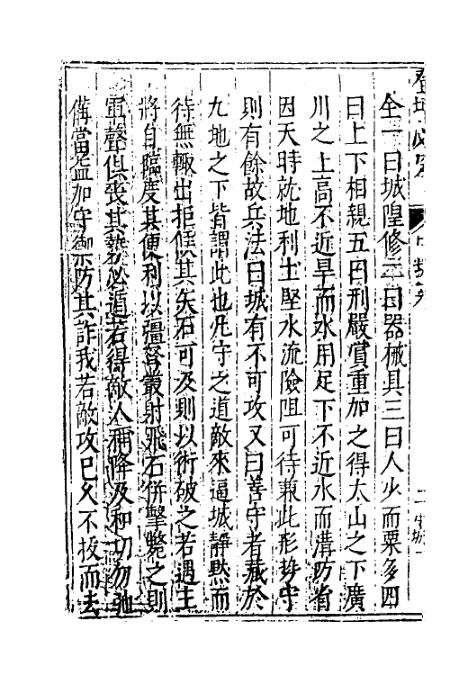 登壇必究
全一曰城隍修二曰器械具三曰人少而粟多四
曰上下相親五曰刑嚴賞重加之得太山之下廣
川之上高不近旱而水用足下不近水而溝防省
因天時就地利土堅水流險阻可待兼此形勢守
則有餘故兵法曰城有不可攻又曰善守者藏於
九地之下皆謂此也凡守之道敵來逼城靜默而
待無輙出拒候其矢石可及則以術破之若遇主
將自臨度其便利以彊弩叢射飛石併擊斃之則
軍聲俱喪其勢必遁若得敵人稱降及和切勿弛
備當益加守禦防其詐我若敵攻已久不拔而去